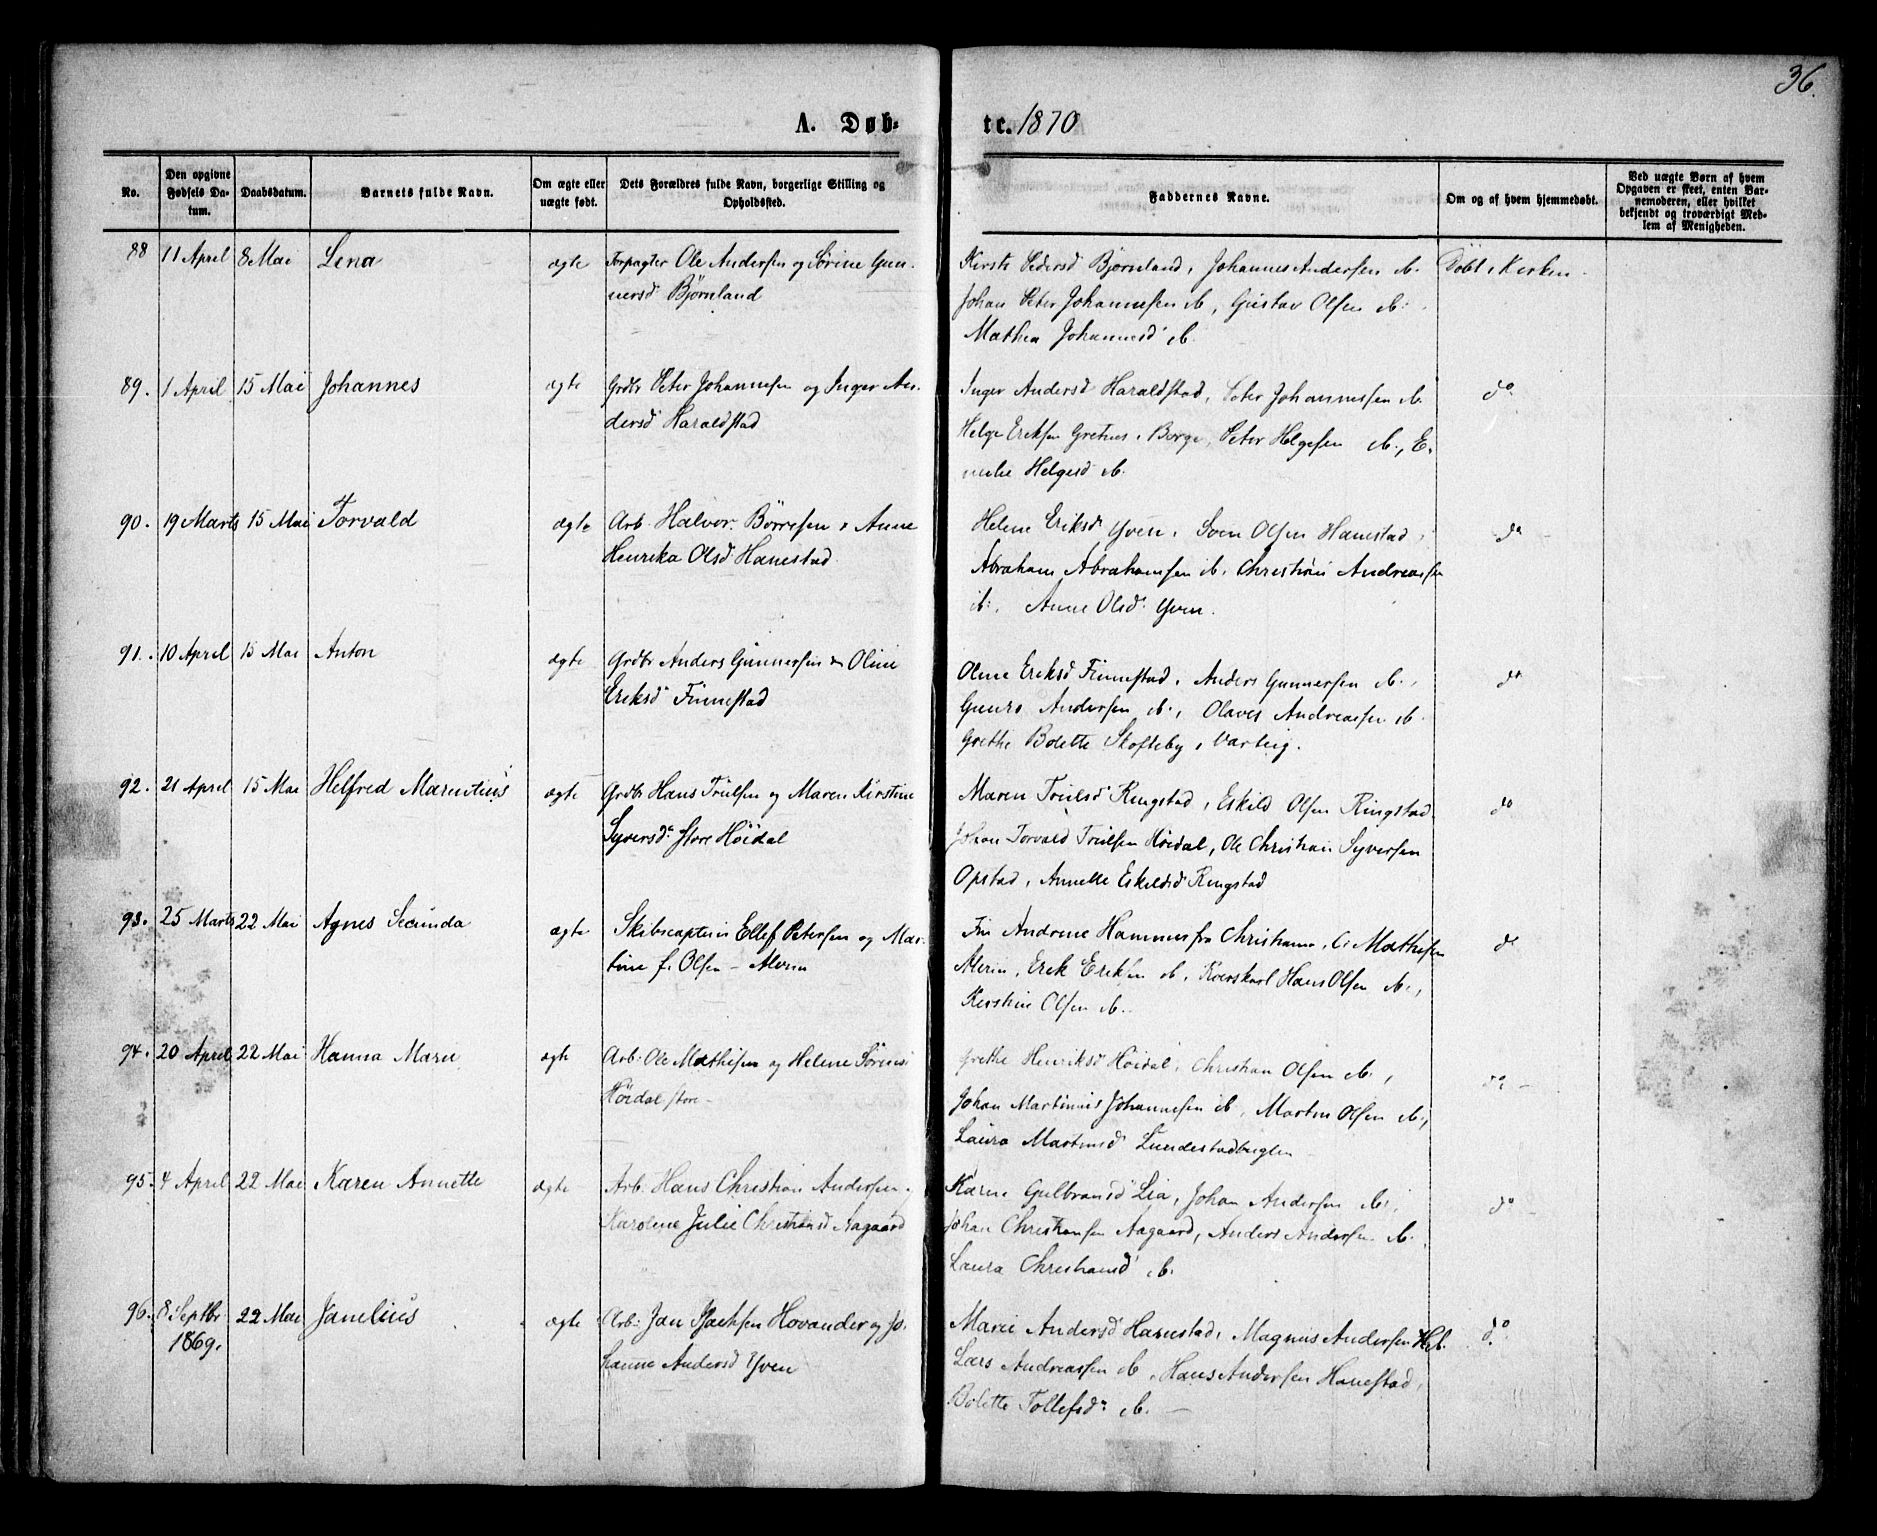 36.
A. Døb- te. 1870
No.
Den opgivne Fødsels Da-tum.
Daabsdatum.
Barnets fulde Navn.
Om ægte eller uægte født.
Dets Forældres fulde Navn, borgerlige Stilling og Opholdssted.
Faddernes Navne.
Om og af hvem hjemmedøbt.
Ved uægte Børn af hvem Opgaven er skeet, enten Bar-nemoderen, eller hvilket bekjendt og troværdigt Med-lem af Menigheden.
88 11 April 8 Mai Lena ægte Forpagter Ole Andersen og Sørine Gun-
nersd Bjørnland
Kirsti Pedersd Bjørnland, Johannes Andersen ib. Døbt i Kirken
Johan Peter Johannesen ib, Gustav Olsen ib.
Mathea Johannesd ib.
89. 1 April 15 Mai Johannes ægte Grdbr Peter Johannesen og Inger An-
dersd Haraldstad
Inger Andersd Haraldstad, Peter Johannesen ib. do
Helge Eriksen Gretnes i Borge, Peter Helgesen ib., E-
milie Helgesd ib.
90. 19 Marts 15 Mai Torvald ægte Arb. Halvor Børresen & Anne
Henrika Olsd Hanestad.
Helene Eriksd Yven, Sven Olsen Hanestad, do
Abraham Abrahamsen ib, Christian Andreassen
ib., Anne Olsd Yven.
91. 10 April 15 Mai Anton ægte Grdbr Anders Gunnersen & Oline
Eriksd Finnestad
Oline Eriksd Finnestad, Anders Gunnersen ib., do
Gunro Andersen ib., Olaves Andreassen ib.
Grethe Bolette Skofteby i Varteig.
92. 21 April 15 Mai Helfred Marentius ægte Grdbr Hans Truelsen og Maren Kirstine
Syversd Store Höidal
Maren Truelsd Ringstad, Eskild Olsen Ringstad do
Johan Torvald Truelsen Höidal, Ole Christian Syversen
Opstad, Annette Eskildsd Ringstad
93. 25 Marts 22 Mai Agnes Secunda ægte Skibscaptein Ellef Petersen og Mar-
tine f. Olsen - Alvim
Fru Andrine Hammer fra Christiania, C. Mathisen do
Alvim, Erik Eriksen ib, Hans Olsen ib.,
Kirstine Olsen ib.
94. 20 April 22 Mai Hanna Marie ægte Arb. Ole Mathisen og Helene Sörens
Höidal store -
Grethe Henriksd Höidal, Christian Olsen ib., do -
Johan Martinius Johannesen ib, Martin Olsen ib.,
Laura Martinsd
95. 4 April 22 Mai Karen Annette ægte Arb. Hans Christian Andersen
Karoline Julie Christiansd Aagaard
Karine Gulbransd Lia, Johan Andersen ib., do
Johan Christiansen Aagaard, Anders Andersen ib.
Laura Christiansd ib.
96. 8 Septbr 1869. 22 Mai Janelius ægte Arb. Jan Hovander og Jo-
hanne Andersd Yven
Marie Andersd Hanestad, Magnus Andersen ib. do
Lars Andreassen ib, Hans Andersen Hanestad,
Bolette Tollefsd ib. -